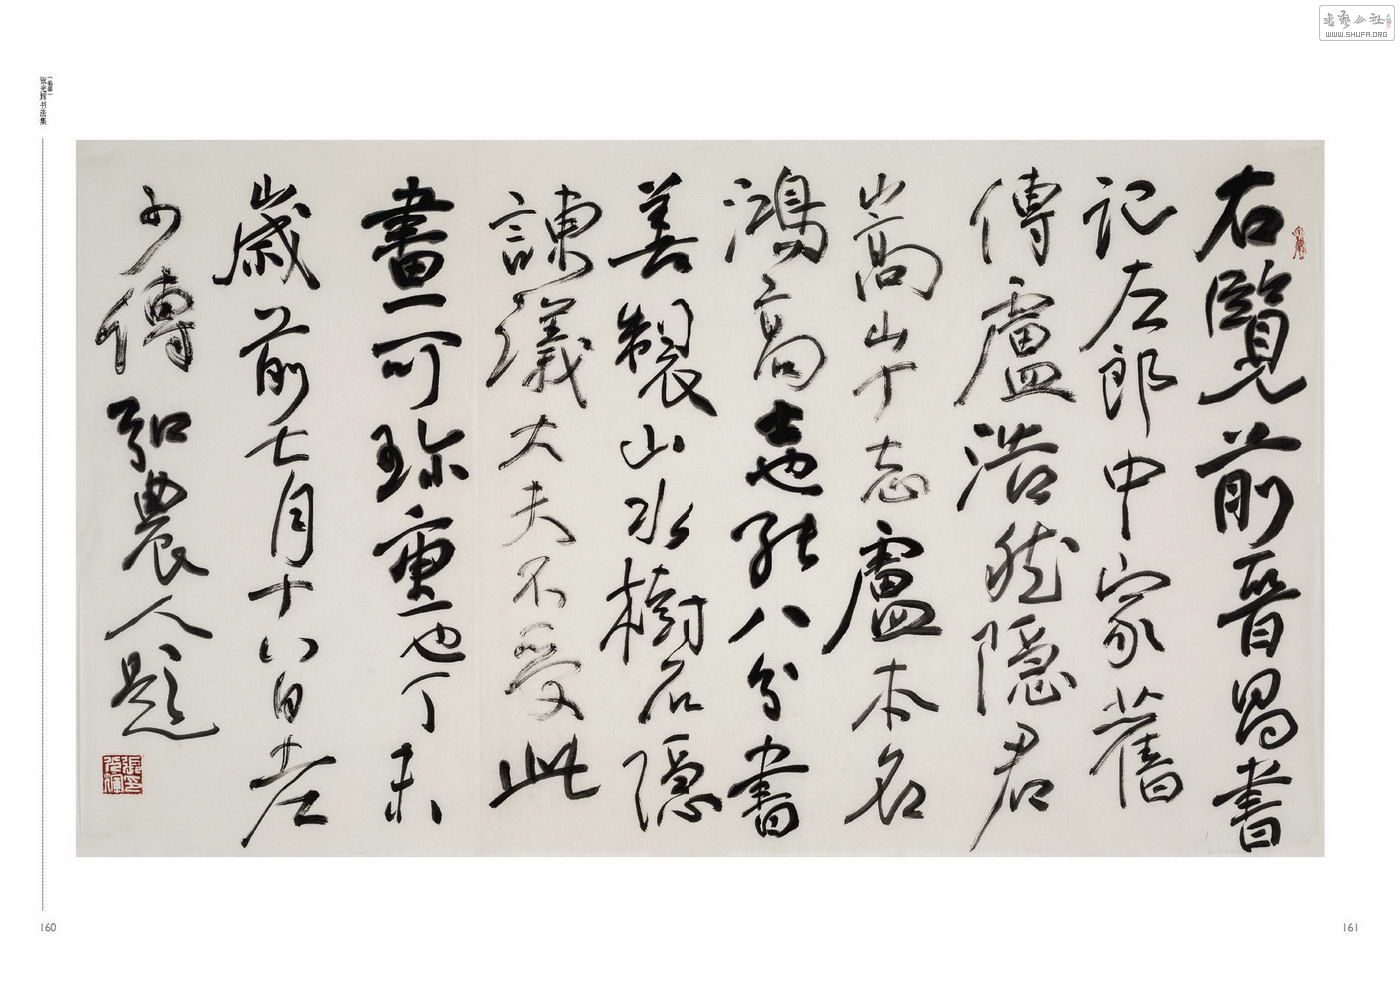 右覽前晉昌書
記左郎中家舊
傳盧浩然隱君
嵩山十志盧本名
鴻高士也能八分書
善製山水樹石隱
諫議大夫不受此
畫可珍重也丁未
歲前七月十八日老
少傅弘農人題
书法集
160
161
WWW.SHUFA.ORG